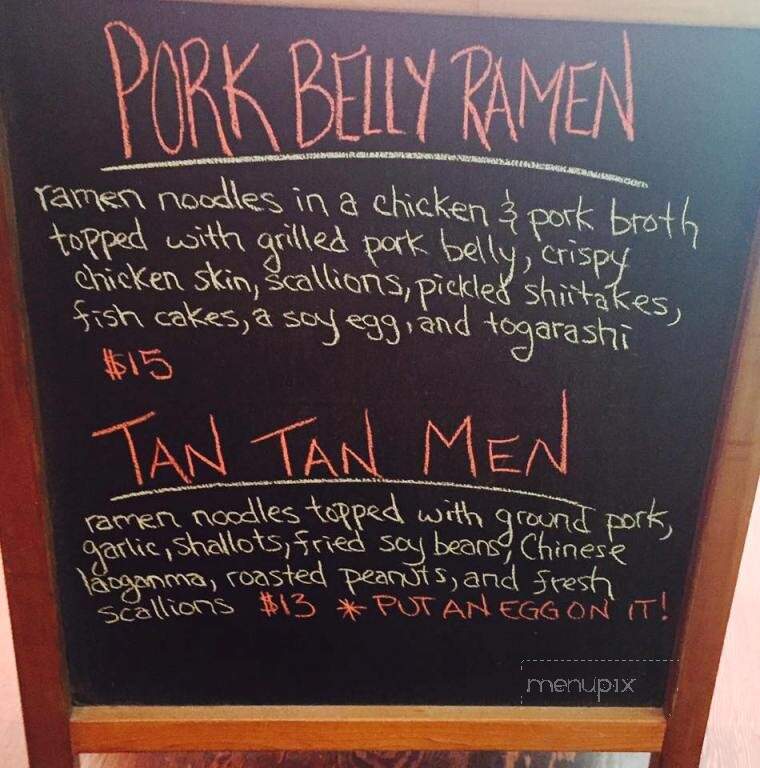 PORK BELLY RAMEN
ramen noodles in a chicken & pork broth
topped with grilled pork belly, crispy
chicken skin, scallions, pickled shiitakes,
fish cakes, a soy egg, and togarashi
$15
TAN TAN MEN
ramen noodles topped with ground pork,
garlic, shallots, fried soy beans, Chinese
laoganma, roasted peanuts, and fresh
scallions $13 * PUT AN EGG ON IT!
menupix